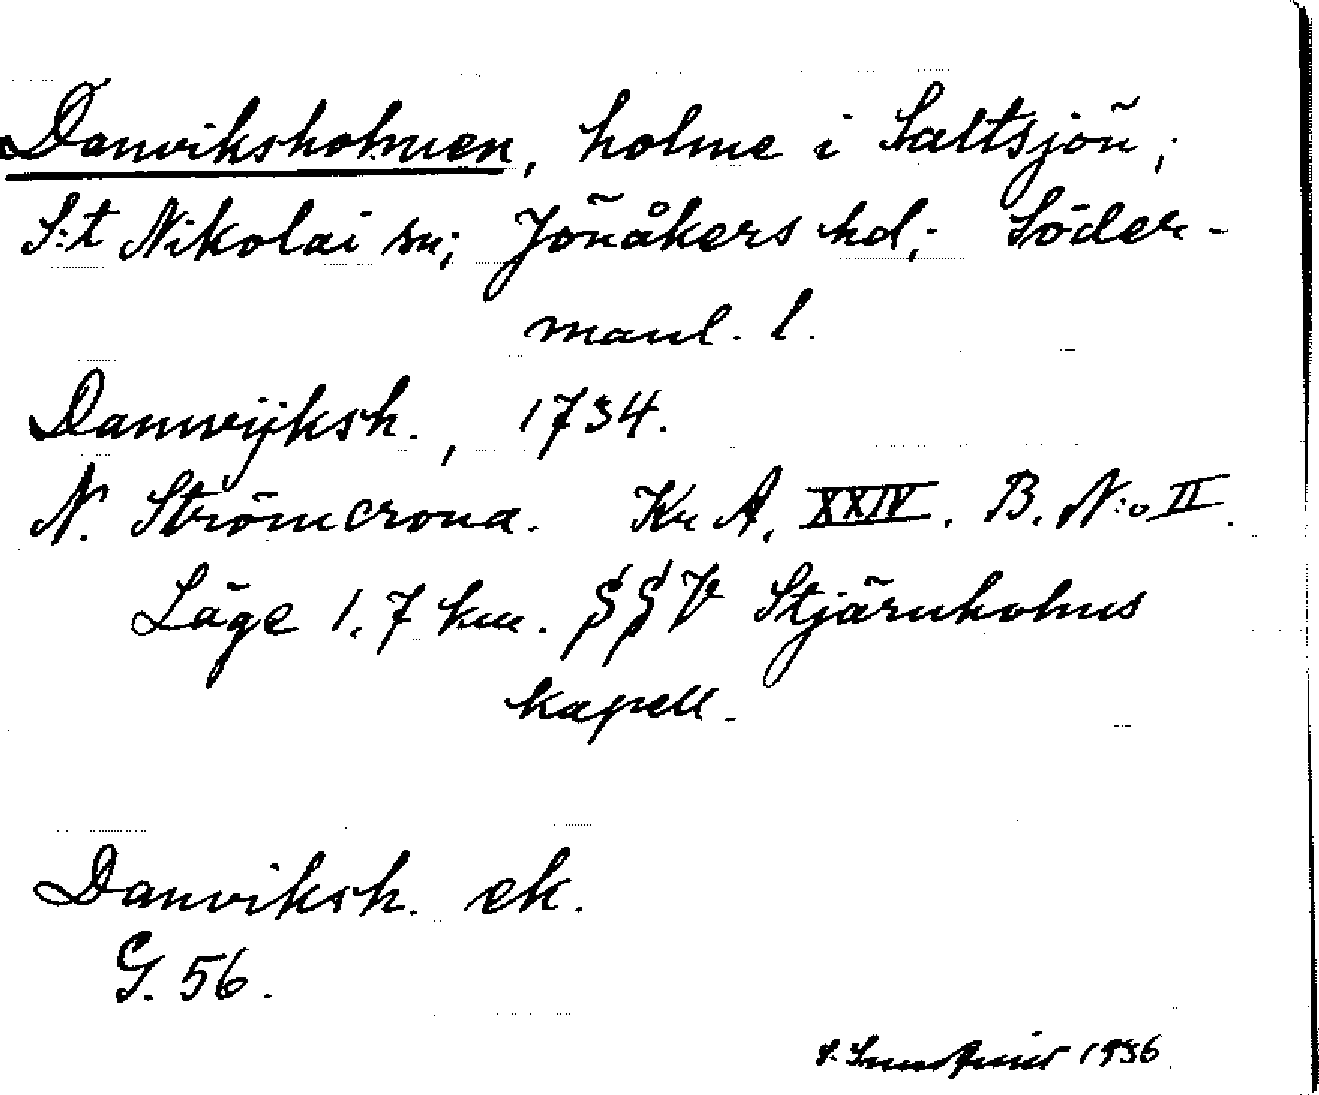 Danviksholmen, holme i Saltsjön,
S:t Nikolai sn; Jönåkers hd; Söder-
manl. l.
Danwijksh., 1734.
N. Strömcrona. Kr A. XXIV. B. N:o II.
Läge 1.7 km. SSV Stjärnholms
kapell.
Danviksh. ek.
G. 56.
1936